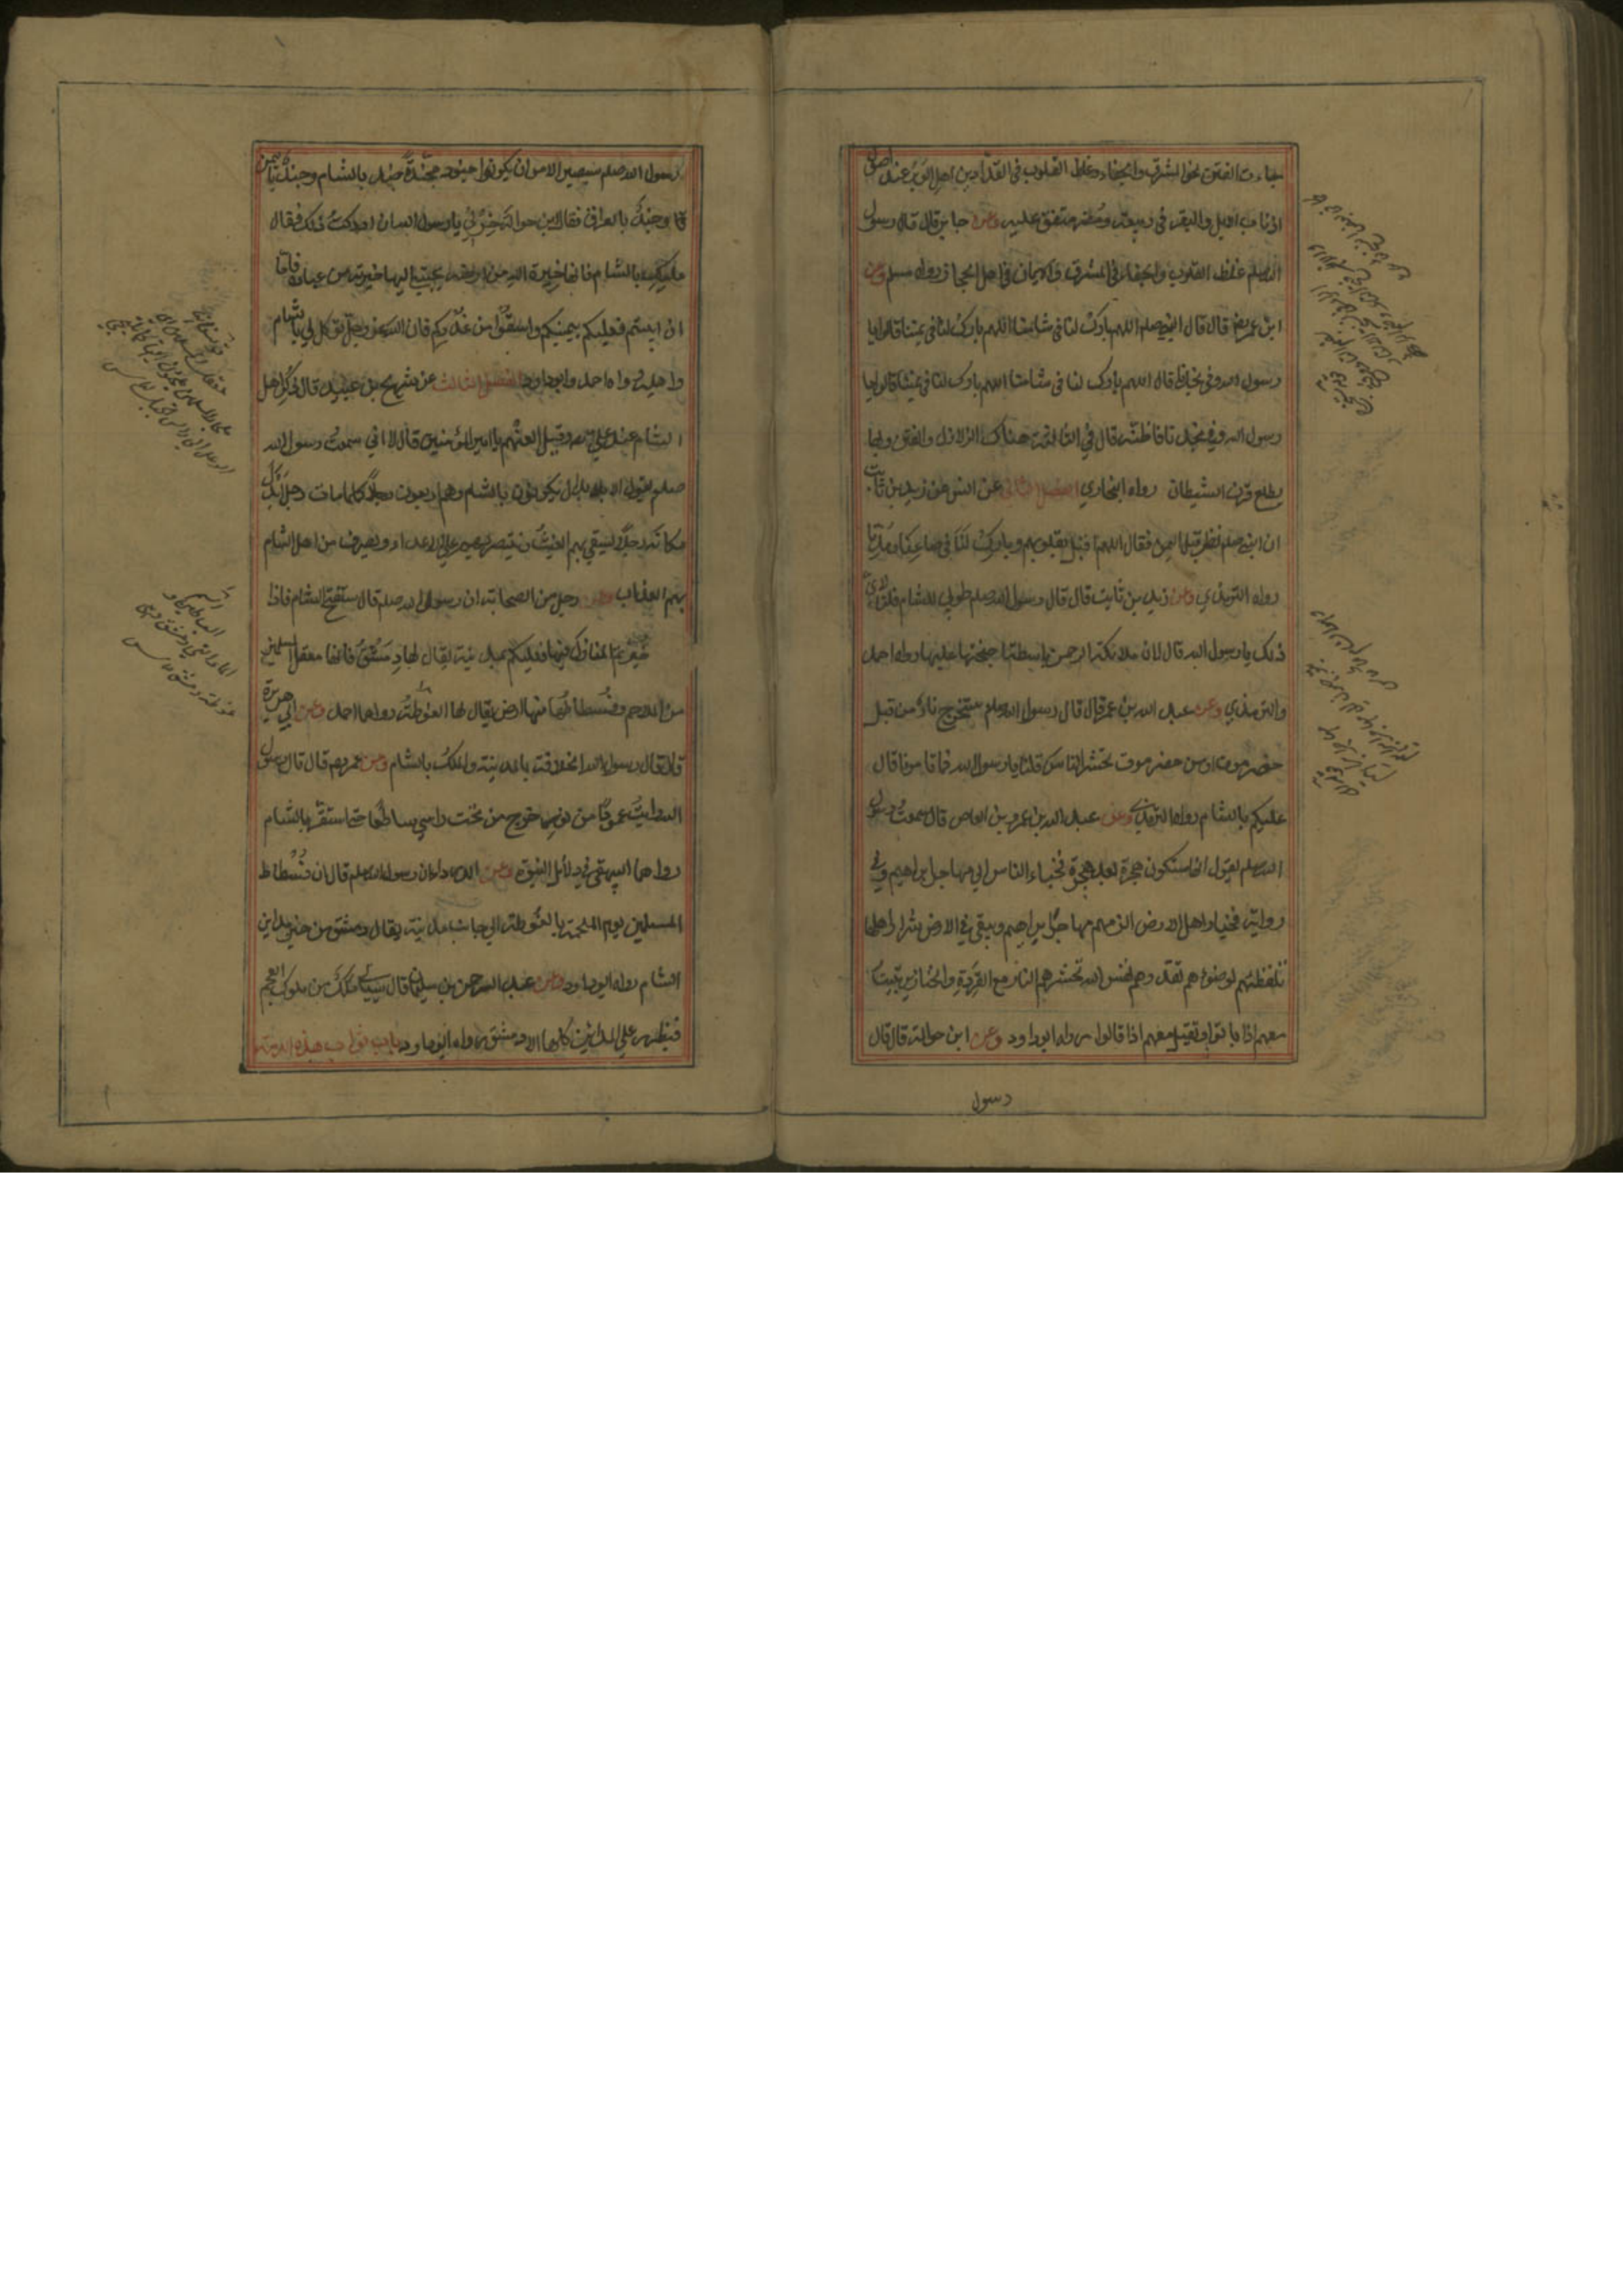 جاءت الفتن نحو المشرق والجفاء وغلظ القلوب في الفدادين اهل الوبر عند اصول
اذناب الابل والبقر في ربيعة ومضر متفق عليه وعن جابر قال قال رسول
الله صلعم غلظ القلوب والجفاء في المشرق والايمان في اهل الحجاز رواه مسلم وعن
ابن عمر قال قال النبي صلعم اللهم بارك لنا في شامنا اللهم بارك لنا في يمننا قالوا يا
رسول الله وفي نجدنا قال اللهم بارك لنا في شامنا اللهم بارك لنا في يمننا قالوا يا
رسول الله وفي نجدنا فاظنه قال في الثالثة هناك الزلازل والفتن وبها
يطلع قرن الشيطان رواه البخاري الفصل الثاني عن انس عن زيد بن ثابت
ان النبي صلعم نظر قبل اليمن فقال اللهم اقبل بقلوبهم وبارك لنا في صاعنا ومدنا
رواه الترمذي وعن زيد بن ثابت قال قال رسول الله صلعم طوبى للشام قلنا لاي
ذلك يا رسول الله قال لان ملائكة الرحمن باسطة اجنحتها عليها رواه احمد
والترمذي وعن عبد الله بن عمر قال قال رسول الله صلعم ستخرج نار من قبل
حضرموت او من حضرموت تحشر الناس قلنا يا رسول الله فما تامرنا قال
عليكم بالشام رواه الترمذي وعن عبد الله بن عمرو بن العاص قال سمعت رسول
الله صلعم يقول انها ستكون هجرة بعد هجرة فخيار الناس الى مهاجر ابراهيم وفي
رواية فخيار اهل الارض الزمهم مهاجر ابراهيم ويبقى في الارض شرار اهلها
تلفظهم ارضوهم تقذرهم نفس الله تحشرهم النار مع القردة والخنازير تبيت
معهم اذا باتوا وتقيل معهم اذا قالوا رواه ابوداود وعن ابن حوالة قال قال
رسول
رسول الله صلعم سيصير الامر ان يكونوا جنودا مجندة جند بالشام وجند باليمن
وجند بالعراق فقال ابن حوالة خر لي يا رسول الله ان ادركت ذلك فقال
عليك بالشام فانها خيرة الله من ارضه يجتبي اليها خيرته من عباده فاما
ان ابيتم فعليكم بيمنكم واسقوا من غدركم فان الله عز وجل توكل لي بالشام
واهله رواه احمد وابوداود الفصل الثالث عن شريح بن عبيد قال ذكر اهل
الشام عند علي وقيل العنهم يا امير المؤمنين قال لا اني سمعت رسول الله
صلعم يقول الابدال يكونون بالشام وهم اربعون رجلا كلما مات رجل ابدل
مكانه رجلا يسقى بهم الغيث وينتصر بهم على الاعداء ويصرف من اهل الشام
بهم العذاب وعن رجل من الصحابة ان رسول الله صلعم قال ستفتح الشام فاذا
خيرتم المنازل فيها فعليكم بمدينة يقال لها دمشق فانها معقل المسلمين
من الملاحم وفسطاطها منها ارض يقال لها الغوطة رواهما احمد وعن ابي هريرة
قال قال رسول الله الخلافة بالمدينة والملك بالشام وعن عمر قال قال رسول
الله رايت عمودا من نور خرج من تحت راسي ساطعا حتى استقر بالشام
رواهما البيهقي في دلائل النبوة وعن ابي الدرداء ان رسول الله صلعم قال ان فسطاط
المسلمين يوم الملحمة بالغوطة الى جانب مدينة يقال دمشق من خير مداين
الشام رواه ابوداود وعن عبد الرحمن بن سليمان قال سياتي ملك من ملوك العجم
فيظهر على المدائن كلها الا دمشق رواه ابوداود باب ثواب هذه الامة